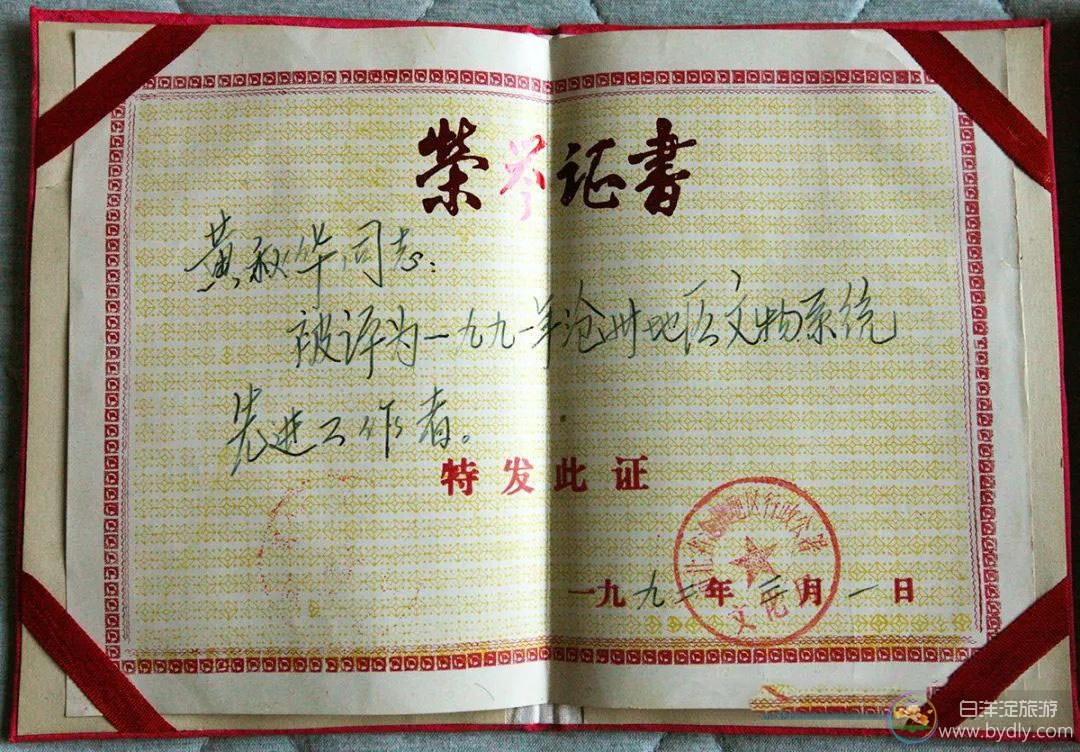 荣誉证书
黄秋华同志:
被评为一九九一年沧州地区文物系统
先进工作者。
特发此证
地区行政公署
文化局
一九九二年三月一日
白洋淀旅游
www.bydly.com